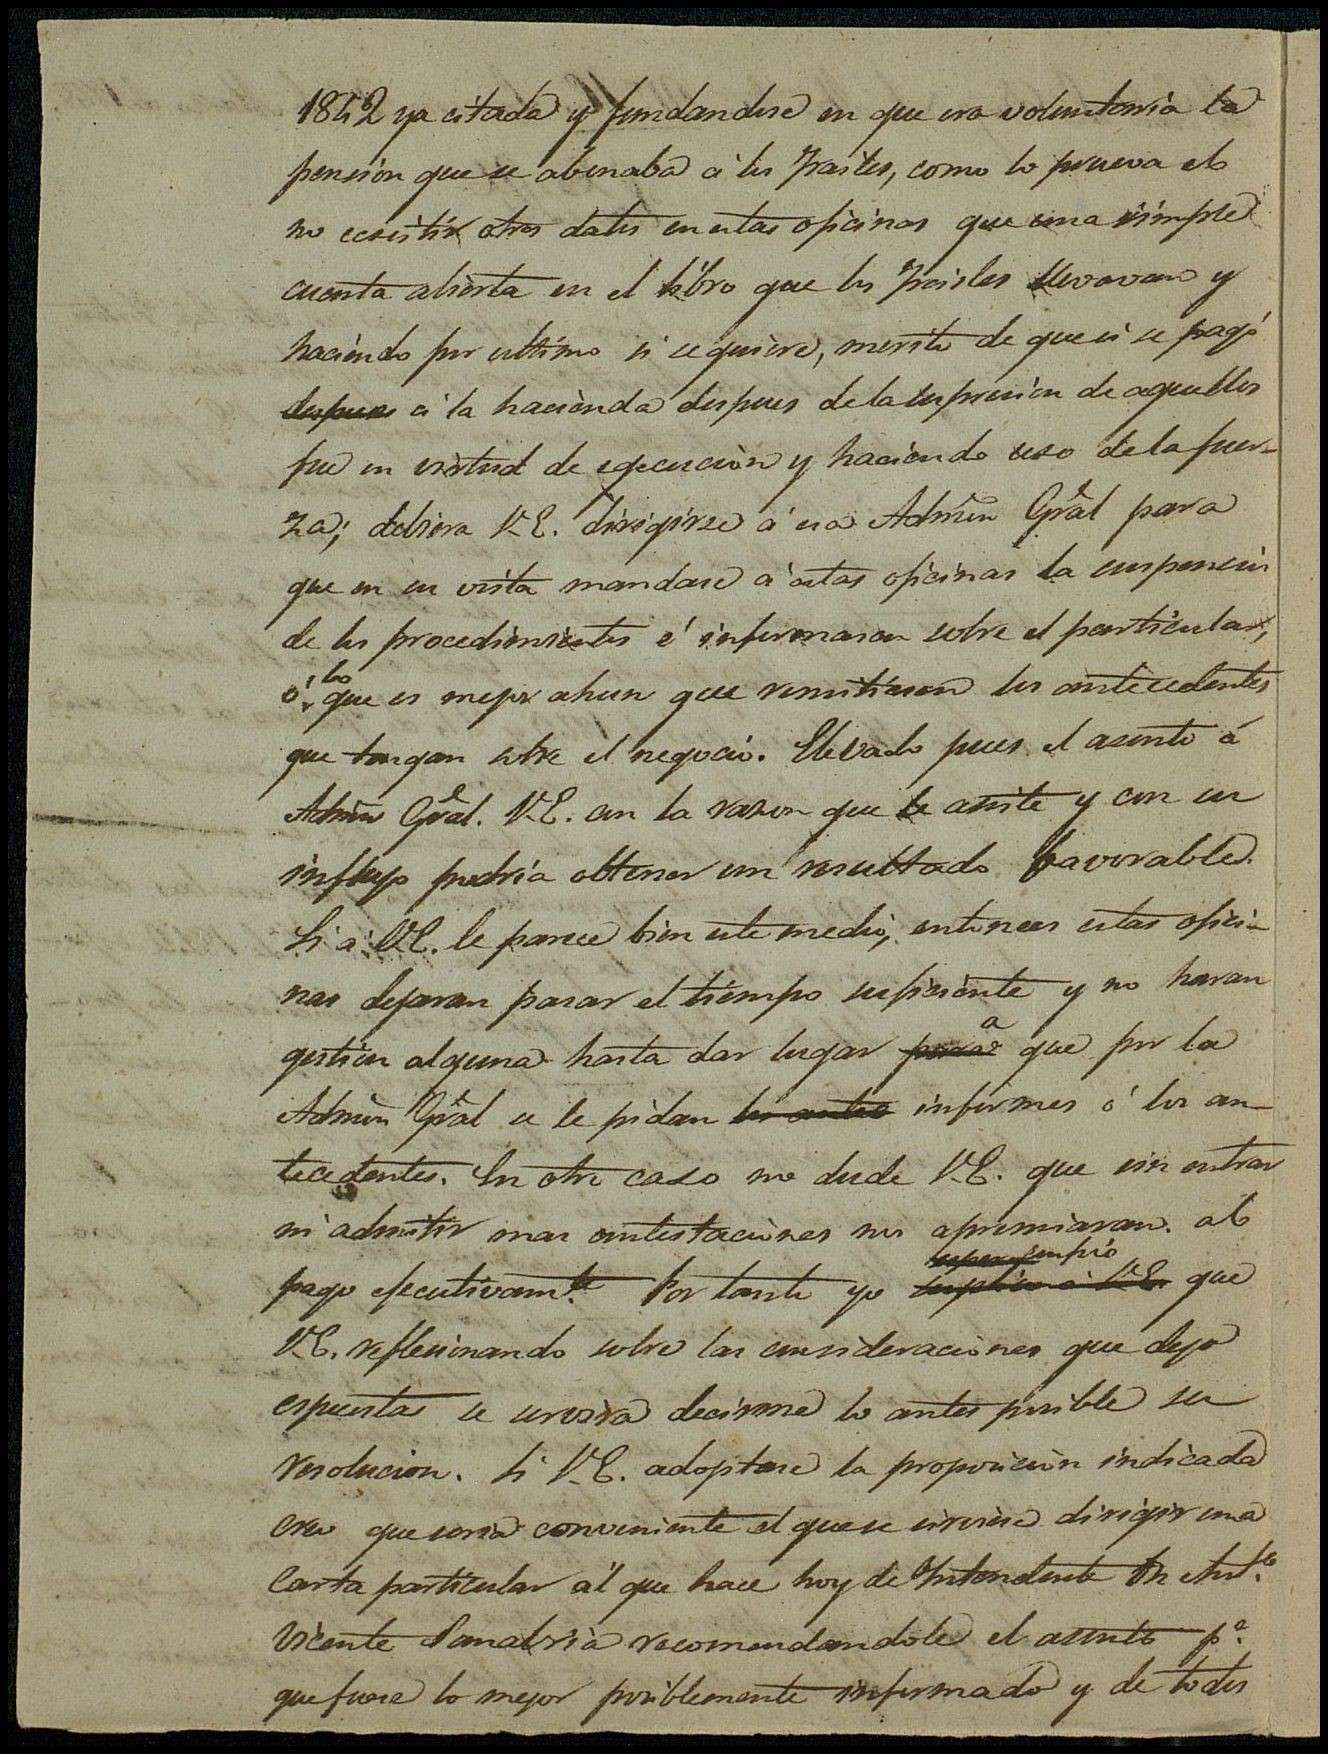 1842 ya citada y fundandose en que era voluntaria la
pension que se abonaba á los Frailes, como lo prueva el
no ecsistir otros datos en estas oficinas que una simple
cuenta abierta en el libro que los Frailes llevavan y
haciendo por ultimo si se quiere, merito de que si se pagó
despues á la hacienda despues de la supresion de aquellos
fue en virtud de egecucion y haciendo uso de la fuer-
za; debiera V.E. dirigirse á esa Admon Gral para
que en su vista mandase á estas oficinas la suspension
de los procedimientos é informaran sobre el particular,
ó lo que es mejor ahun que remitiesen los antecedentes
que tengan sobre el negocio. Elevado pues el asunto á
Admon Gral. V.E. con la razon que le asiste y con su
influjo podria obtener un resultado favorable.
Si á V.E. le parece bien este medio, entonces estas ofici-
nas dejaran pasar el tiempo suficiente y no haran
gestion alguna hasta dar lugar para a que por la
Admon Gral se le pidan los ante informes ó los an-
tecedentes. En otro caso no dude V.E. que sin entrar
ni admitir mas contestaciones nos apremiaran al
pago ejecutivamte. Por tanto yo suplico á V.E. que
V.E. reflesionando sobre las consideraciones que dejo
espuestas se servira decirme lo antes posible su
resolucion. Si V.E. adoptase la proposicion indicada
creo que seria conveniente el que se sirviese dirigir una
carta particular al que hace hoy de Intendente Dn Anto.
Vicente Sanabria recomendandole el asunto pa.
que fuese lo mejor posiblemente informado y de todos